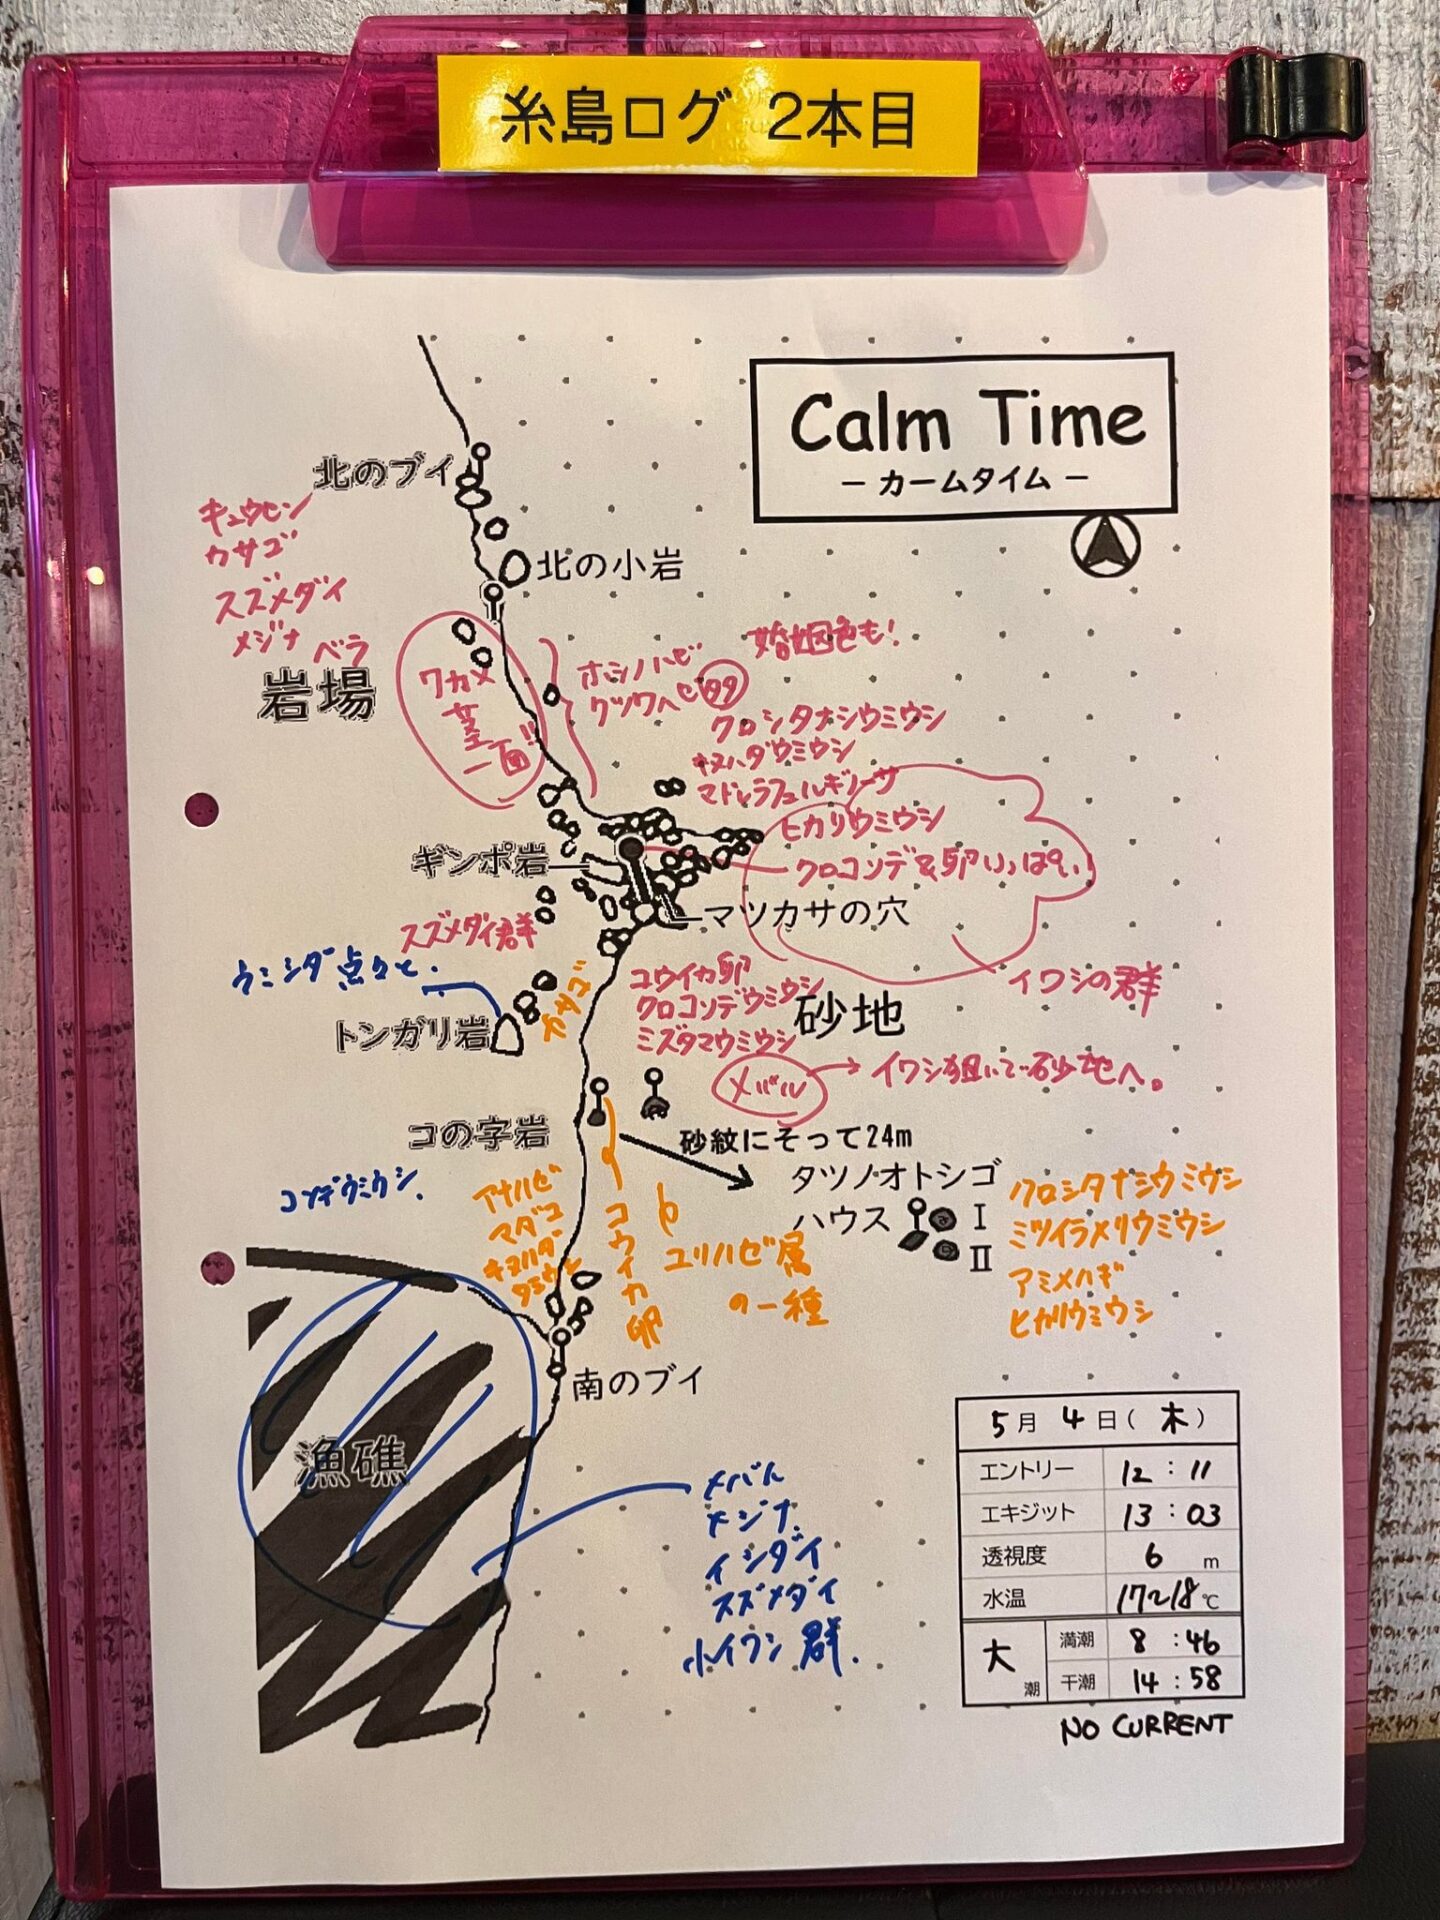 糸島ログ 2本目
Calm Time
－ カームタイム －
北のブイ
キュウセン
カサゴ
スズメダイ
メジナ ベラ
北の小岩
岩場
ワカメ
茎
一面
ホシノハゼ
クツワハゼ 多々
婚姻色も!
クロシタナシウミウシ
キヌハダウミウシ
マドレラフェルギノーサ
ヒカリウミウシ
クロコソデ&卵いっぱい
ギンポ岩
マツカサの穴
スズメダイ群
イワシの群
ウミシダ点々と.
トンガリ岩
カサゴ
コウイカ卵
クロコソデウミウシ
ミズタマウミウシ
砂地
メバル → イワシ狙いで砂地へ。
コの字岩
砂紋にそって24m
タツノオトシゴ
ハウス
I
II
コソデウミウシ.
アナハゼ
マダコ
キヌハダ
ウミウシ
コウイカ卵
ユリハゼ属
の一種
クロシタナシウミウシ
ミツイラメリウミウシ
アミメハギ
ヒカリウミウシ
南のブイ
漁礁
メバル
メジナ
イシダイ
スズメダイ
小イワシ 群.
5月 4日( 木 )
エントリー 12 : 11
エキジット 13 : 03
透視度 6 m
水温 17~18 ℃
大潮 満潮 8 : 46
干潮 14 : 58
NO CURRENT